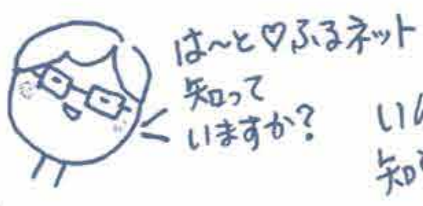 は〜と♡ふるネット
知って
いますか？